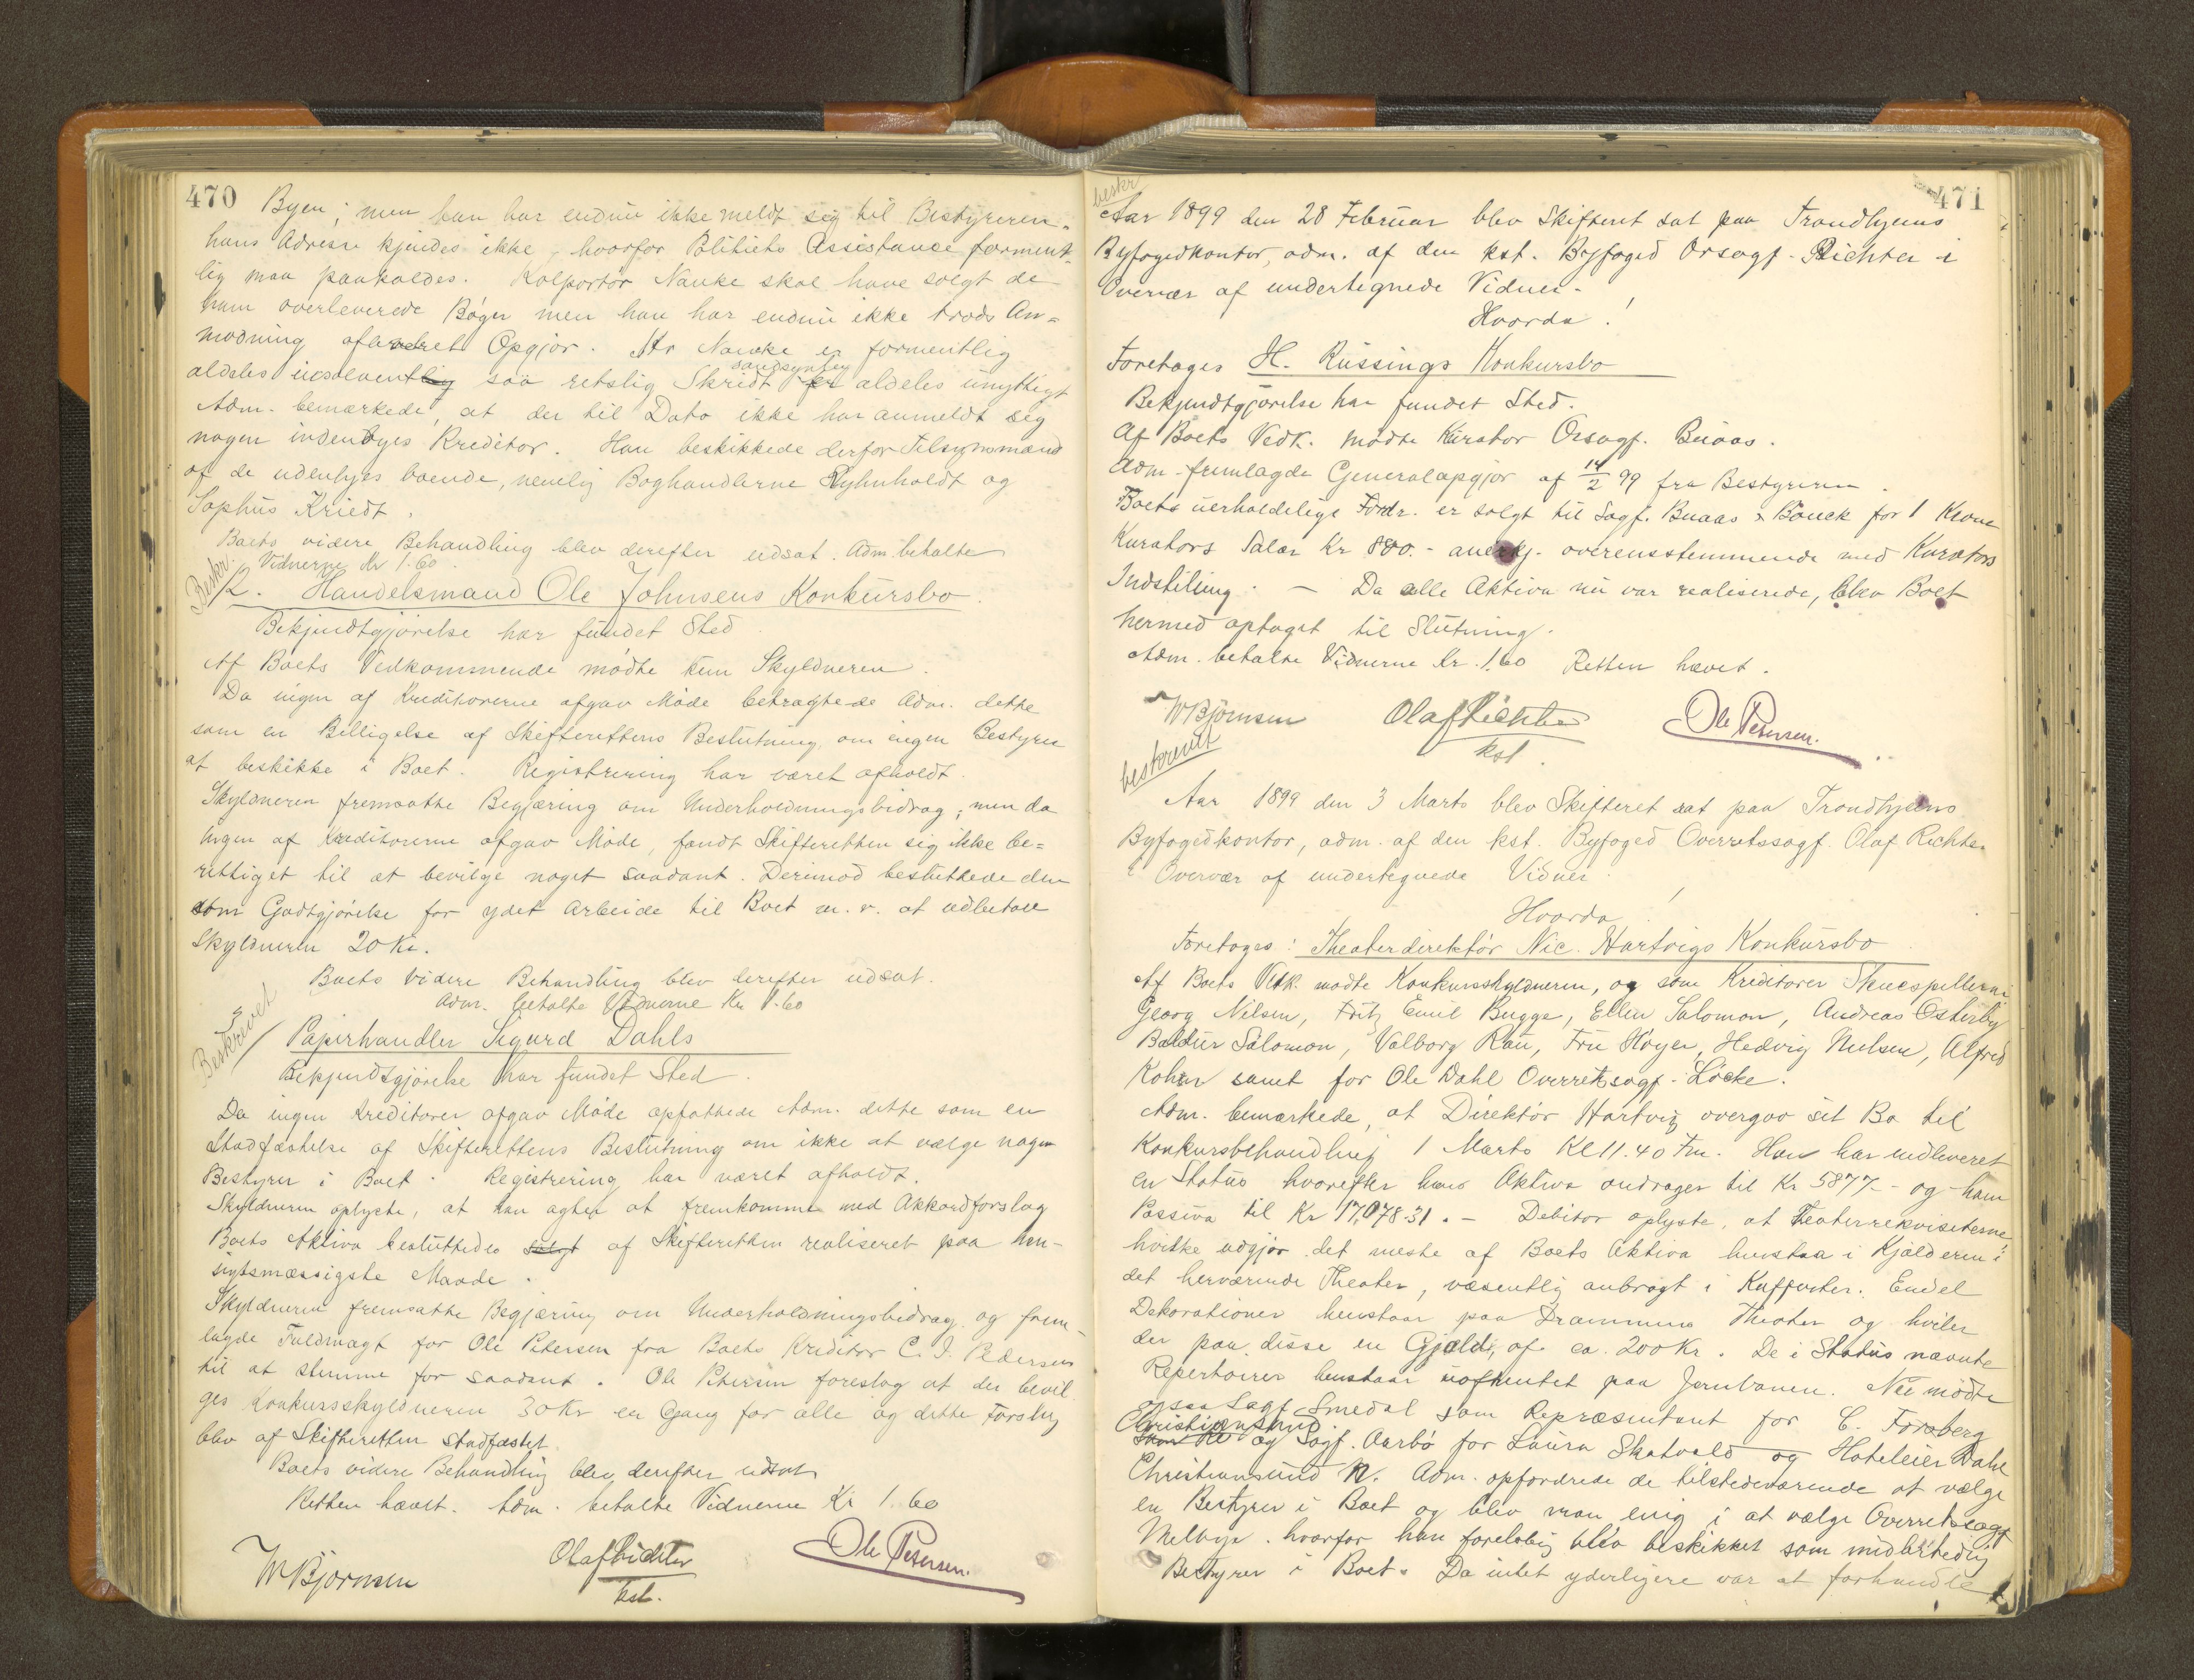 470
Byen; men han har endnu ikke meldt sig til Bestyreren.
hans Adresse kjendes ikke, hvorfor Politiets Assistance forment-
lig maa paakaldes. Kolportør Nauke skal have solgt de
ham overleverede Bøger men han har endnu ikke trods An=
modning aflagt Opgjør. Hr Nauke er formentlig
sandsynlig
aldeles insolvent saa retslig Skridt er aldeles unyttigt
Adm. bemærkede, at der til Dato ikke har anmeldt sig
nogen indenbyes Kreditor. Han beskikkede derfor Tilsynsmænd
af de udenbyes boende, nemlig Boghandlerne Ryhnholdt og
Sophus Kriedt.
Boets videre Behandling blev derefter udsat. Adm. betalte
Vidnerne Kr 1.60
Beskr.
2. Handelsmand Ole Johnsens Konkursbo.
Bekjendtgjørelse har fundet Sted.
Af Boets Vedkommende mødte kun Skyldneren.
Da ingen af Kreditorerne afgav Møde betragtede Adm. dette
som en Billigelse af Skifterettens Beslutning om ingen Bestyrer
at beskikke i Boet. Registrering har været afholdt.
Skyldneren fremsatte Begjæring om Underholdningsbidrag; men da
ingen af Kreditorerne afgav Møde, fandt Skifteretten sig ikke be=
rettiget til at bevilge noget saadant. Derimod besluttede den
som Godtgjørelse for ydet Arbeide til Boet m. v. at udbetale
Skyldneren 20 Kr.
Boets videre Behandling blev derefter udsat.
Adm. betalte Vidnerne Kr 1.60
Beskrevet
3/ Papirhandler Sigurd Dahls
Bekjendtgjørelse har fundet Sted.
Da ingen Kreditorer afgav Møde opfattede Adm. dette som en
Stadfæstelse af Skifterettens Beslutning om ikke at vælge nogen
Bestyrer i Boet. Registrering har været afholdt.
Skyldneren oplyste, at han agter at fremkomme med Akkordforslag
Boets Aktiva besluttedes solgt af Skifteretten realiseret paa hen-
sigtsmæssigste Maade.
Skyldneren fremsatte Begjæring om Underholdningsbidrag og frem-
lagde Fuldmagt for Ole Petersen fra Boets Kreditor C. I. Pedersen
til at stemme for saadant. Ole Petersen foreslog at der bevil-
ges Konkursskyldneren 30 Kr en Gang for alle og dette Forslag
blev af Skifteretten stadfæstet.
Boets videre Behandling blev derefter udsat
Retten hævet. Adm. betalte Vidnerne Kr 1.60
W Bjørnsen Olaf Richter Ole Petersen.
kst.
471
beskr
Aar 1899 den 28 Februar blev Skifteret sat paa Trondhjems
Byfogedkontor, adm. af den kst. Byfoged Orsagf. Richter i
Overvær af undertegnede Vidner.
Hvorda!
Foretoges H. Rüssings Konkursbo
Bekjendtgjørelse har fundet Sted.
Af Boets Vedk. mødte Kurator Orsagf. Buaas.
Adm. fremlagde Generalopgjør af 14/2 99 fra Bestyreren.
Boets uerholdelige Fordr. er solgt til Sagf. Buaas & Bauck for 1 Krone
Kurators Salær Kr 800.- anerkj. overensstemmende med Kurators
Indstilling. — Da alle Aktiva nu var realiserede, blev Boet
hermed optaget til Slutning.
Adm. betalte Vidnerne kr. 1.60 Retten hævet.
W Bjørnsen Olaf Richter Ole Petersen.
kst.
beskrevet
Aar 1899 den 3 Marts blev Skifteret sat paa Trondhjems
Byfogedkontor, adm. af den kst. Byfoged Overretssagf. Olaf Richter
i Overvær af undertegnede Vidner.
Hvorda!
Foretoges: Theaterdirektør Nic. Hartvigs Konkursbo.
Af Boets Vedk. mødte Konkursskyldneren, og som Kreditorer Skuespillerne
Georg Nilsen, Fritz Emil Bugge, Ellen Salomon, Andreas Østerby
Baldur Salomon, Valborg Rau, Fru Høyer, Hedvig Nielsen, Alfred
Kohen samt for Ole Dahl Overretssagf. Løcke.
Adm. bemærkede, at Direktør Hartvig overgav sit Bo til
Konkursbehandling 1 Marts Kl 11.40 Fm. Han har indleveret
en Status hvorefter hans Aktiva andrager til Kr 5877.- og hans
Passiva til Kr 17,078.31. — Debitor oplyste, at Theaterrekvisiterne,
hvilke udgjør det meste af Boets Aktiva henstaa i Kjælderen i
det herværende Theater, væsentlig anbragt i Kufferter. Endel
Dekorationer henstaar paa Drammens Theater og hviler
der paa disse en Gjæld, af ca. 200 Kr. De i Status nævnte
Repertoirer henstaar uafhentet paa Jernbanen. Nu mødte
ogsaa Sagf. Smedal som Repræsentant for C. Forsberg
Christiansund
og Sagf. Aarbø for Laura Skatvald og Hoteleier Dahl
Christiansund N. Adm. opfordrede de tilstedeværende at vælge
en Bestyrer i Boet og blev man enig i at vælge Overretssagf
Melbye. hvorfor han foreløbig blev beskikket som midlertidig
Bestyrer i Boet. Da intet yderligere var at forhandle